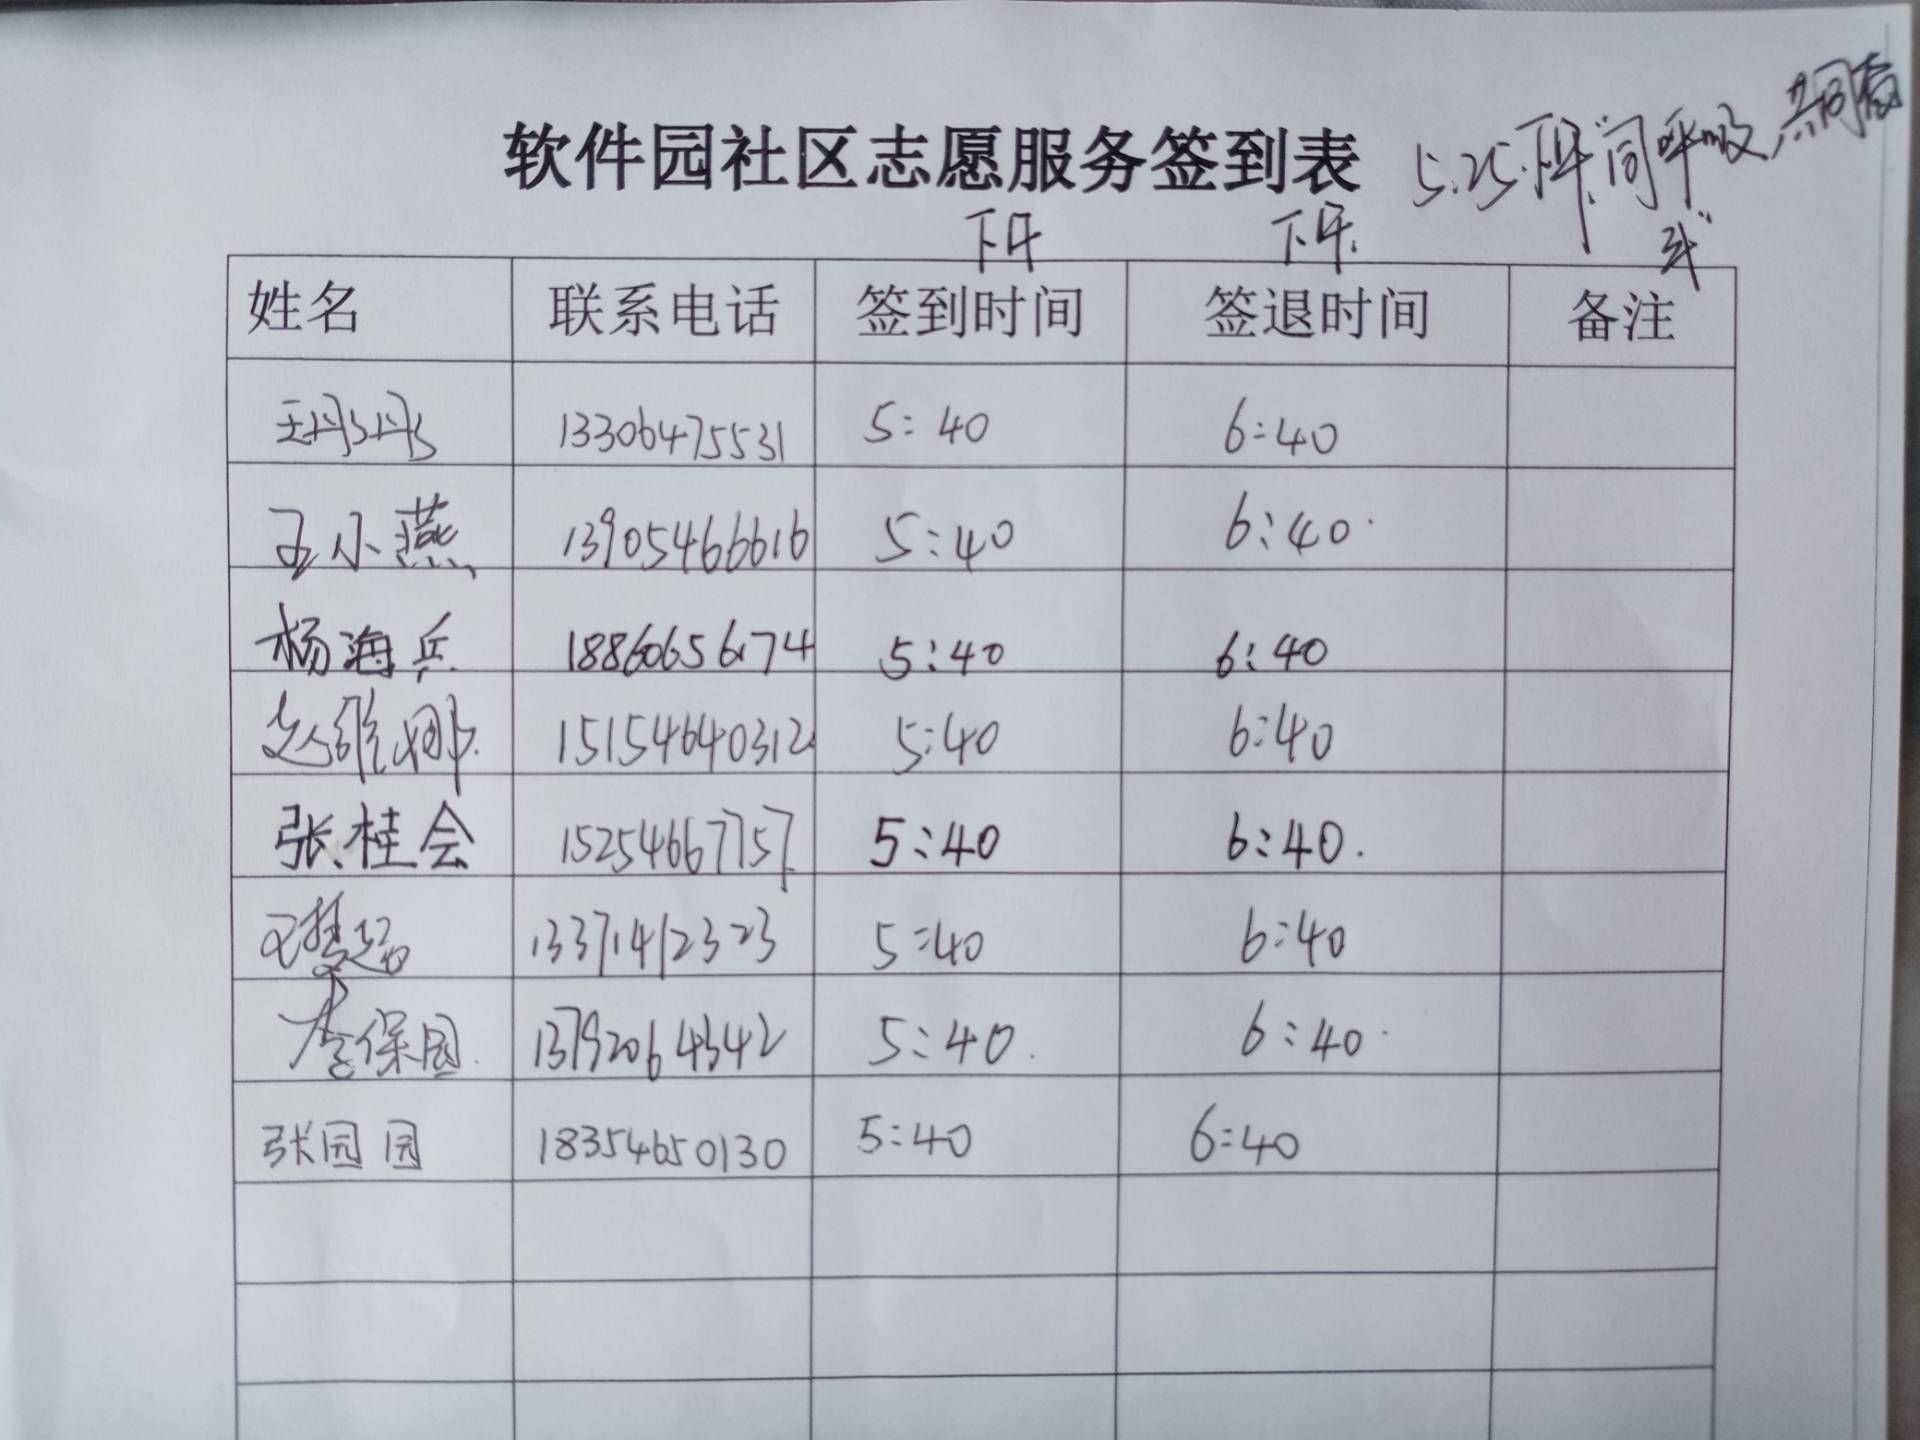 软件园社区志愿服务签到表
5.25.下午"同呼吸,共同奋
斗"
下午 下午.
姓名 联系电话 签到时间 签退时间 备注
王丹丹 13306475531 5:40 6:40
王小燕 13905466616 5:40 6:40
杨海兵 18860656174 5:40 6:40
赵雅娜 15154640312 5:40 6:40
张桂会 15254667757 5:40 6:40.
13371412323 5:40 6:40
李保园 13792064342 5:40. 6:40
张园园 18354650130 5:40 6:40